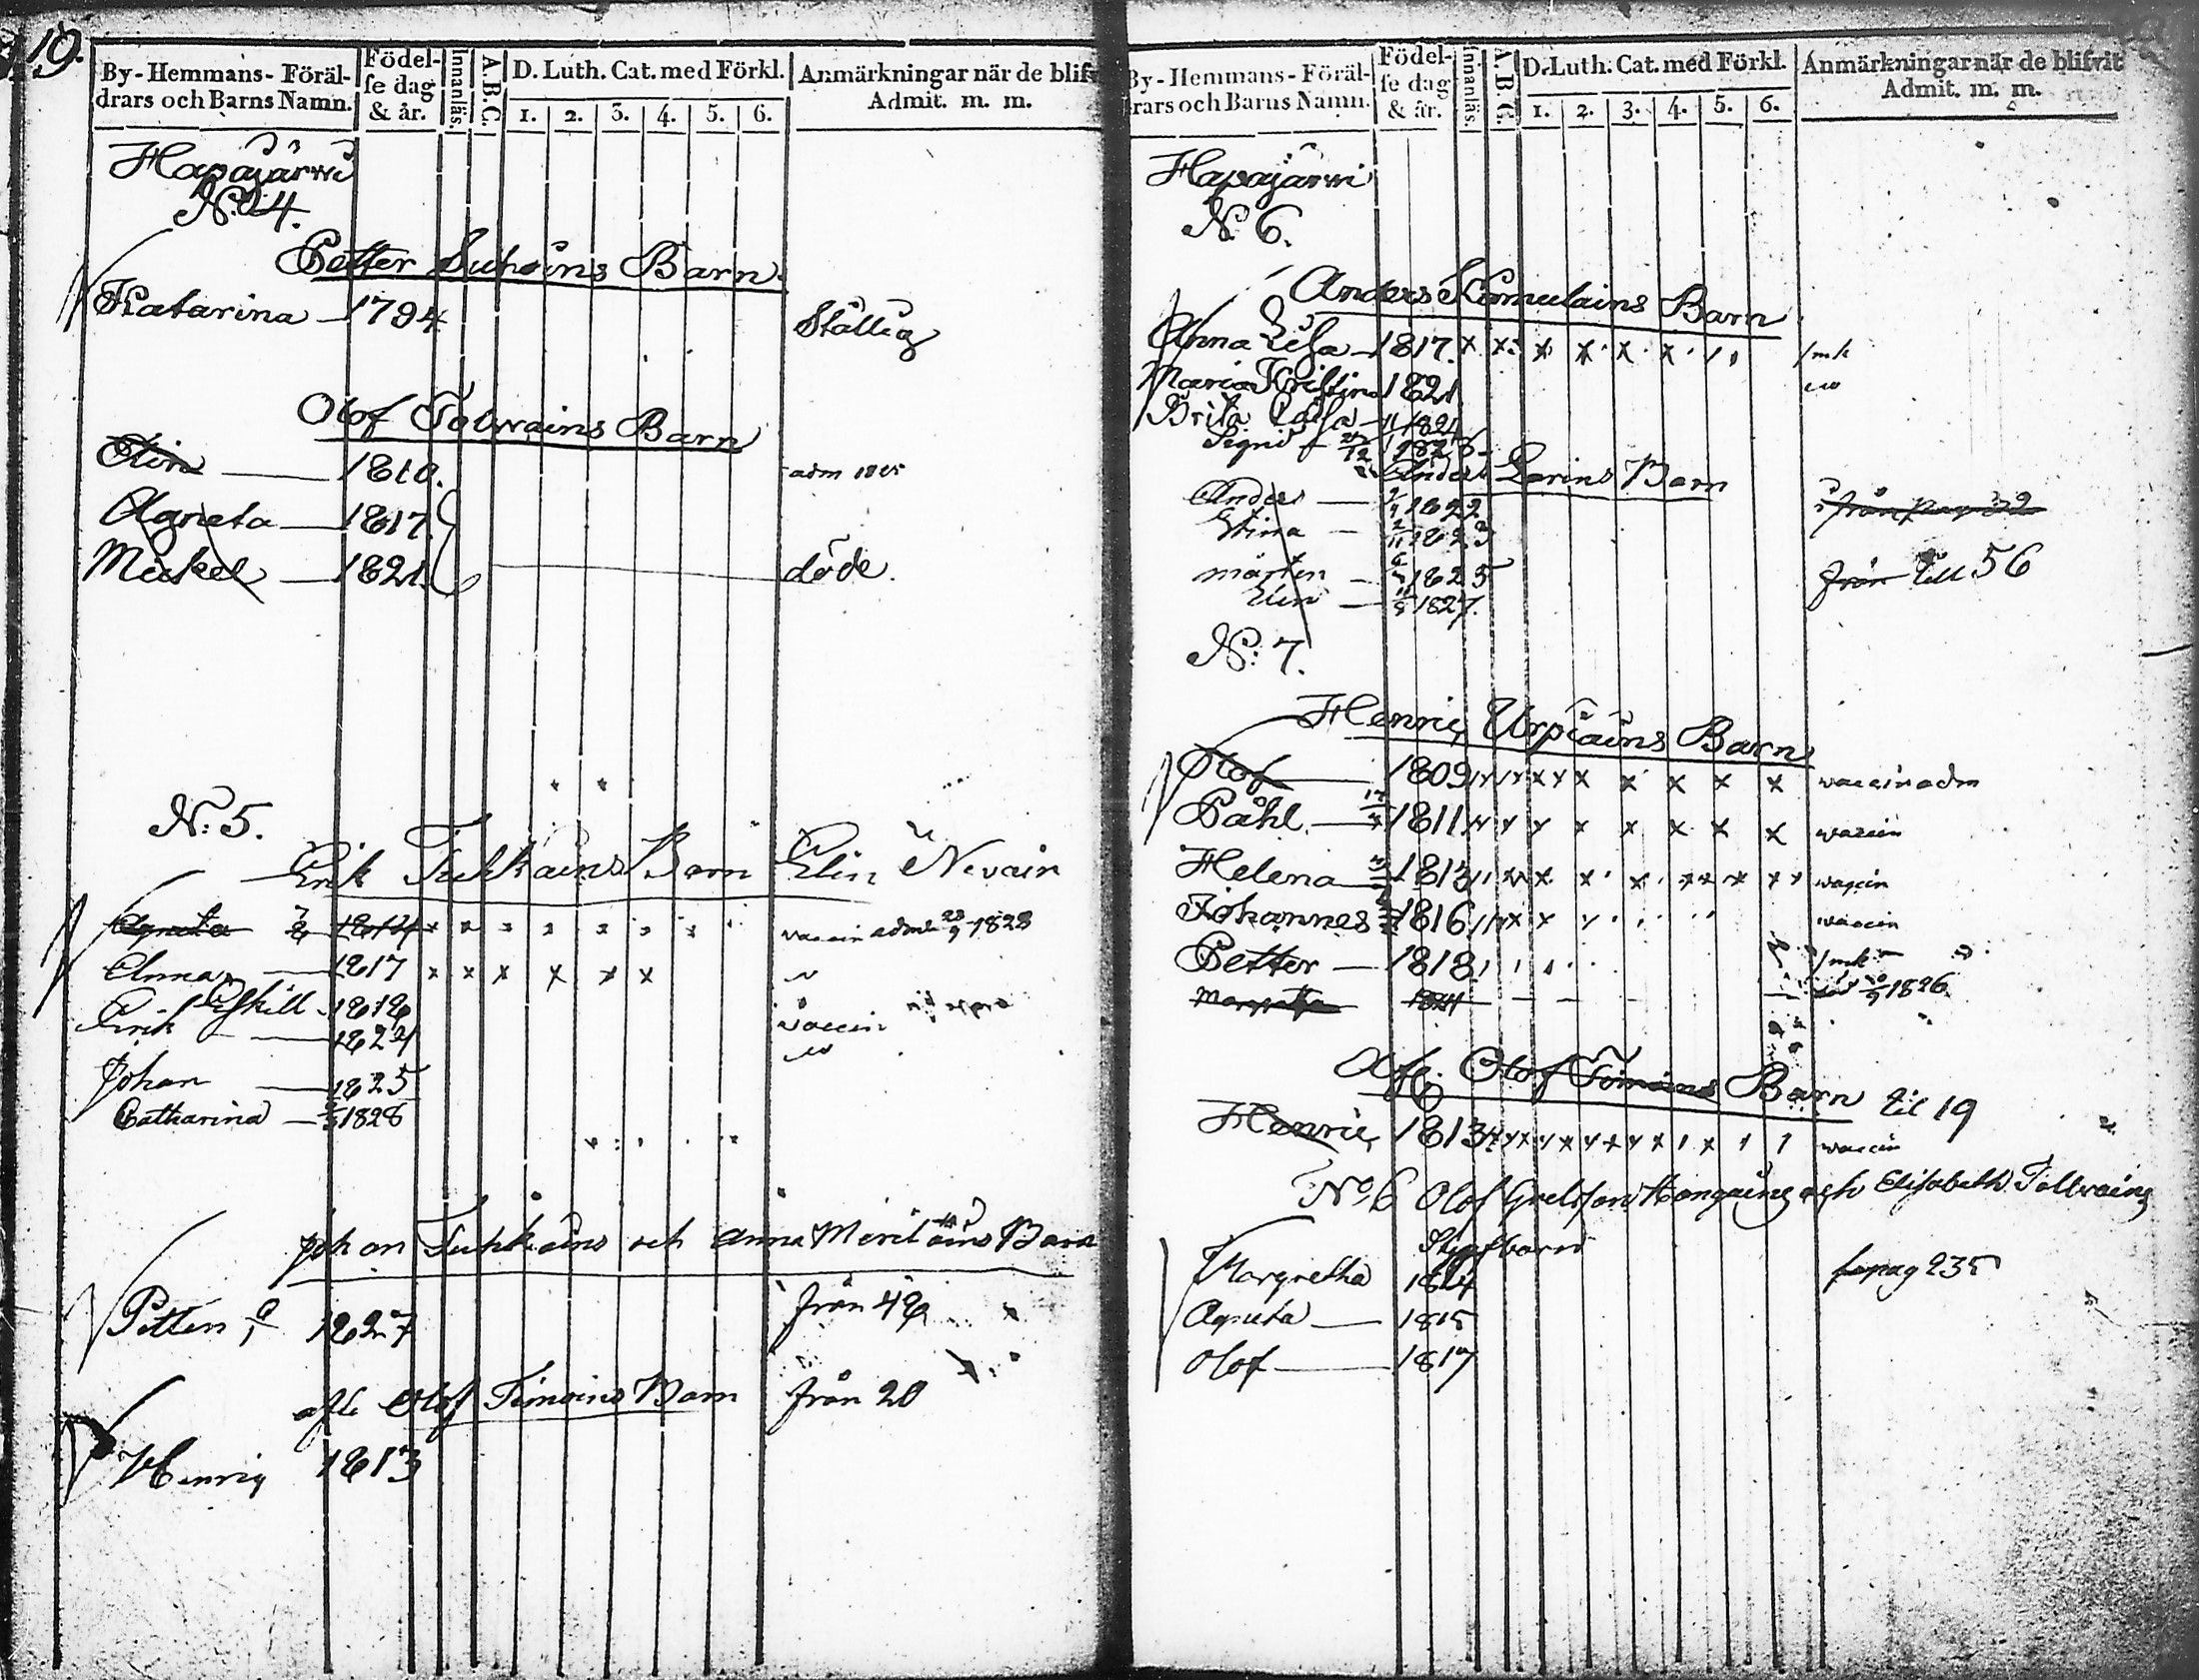 19.
By-Hemmans-Föräl-
drars och Barns Namn.
Födel-
se dag
& år.
Innanläs.
A.B.C.
D. Luth. Cat. med Förkl.
1. 2. 3. 4. 5. 6.
Anmärkningar när de blifv
Admit. m. m.
Hapajärwi
N:o 4.
Petter Suhoins Barn
Katarina - 1794 Ställig
Olof Tolwains Barn
Elin - 1810. adm
Agneta - 1817.
Mickel - 1821. döde.
N: 5.
Erik Tuhkains Barn Elin Nevain
Agneta 1814 x x vaccin adm 23/9 1828
Anna - 1817 x x x x x x
Eskill - 1818
Erik - 1824 vaccin
Johan - 1825
Catharina - 1828
Johan Tuhkains och Anna Meriläins Barn
Petter 1827 från 48
afl. Olof Timoins Barn från 20
Henric 1813
By-Hemmans-Föräl-
rars och Barns Namn.
Födel-
se dag
& år.
Innanläs.
A.B.C.
D. Luth. Cat. med Förkl.
1. 2. 3. 4. 5. 6.
Anmärkningar när de blifvit
Admit. m. m.
Hapajärwi
N. 6.
Anders Komulains Barn
Anna Lisa - 1817. x x x x x x
Maria Kristina 1821
Brita - 1824
Signid - 1826
Anders Larins Barn
Anders - 1822
Stina - 1823
mårten - 1825 från till 56
Elin - 1827.
N: 7.
Henric Urpiains Barn
Olof - 1809 x x x x x x vaccin adm
Påhl - 1811 x x x x x x vaccin
Helena - 1813 x x x x x x vaccin
Johannes 1816 x x vaccin
Petter - 1818
Margreta 1824 1826
Afl. Olof Timoins Barn til 19
Henric 1813 vaccin
No 6 Olof Grelsson Hangains och Elisabeth Tolwains
Styfbarn
Margretha 1814 pag 235
Agneta - 1815
Olof - 1817